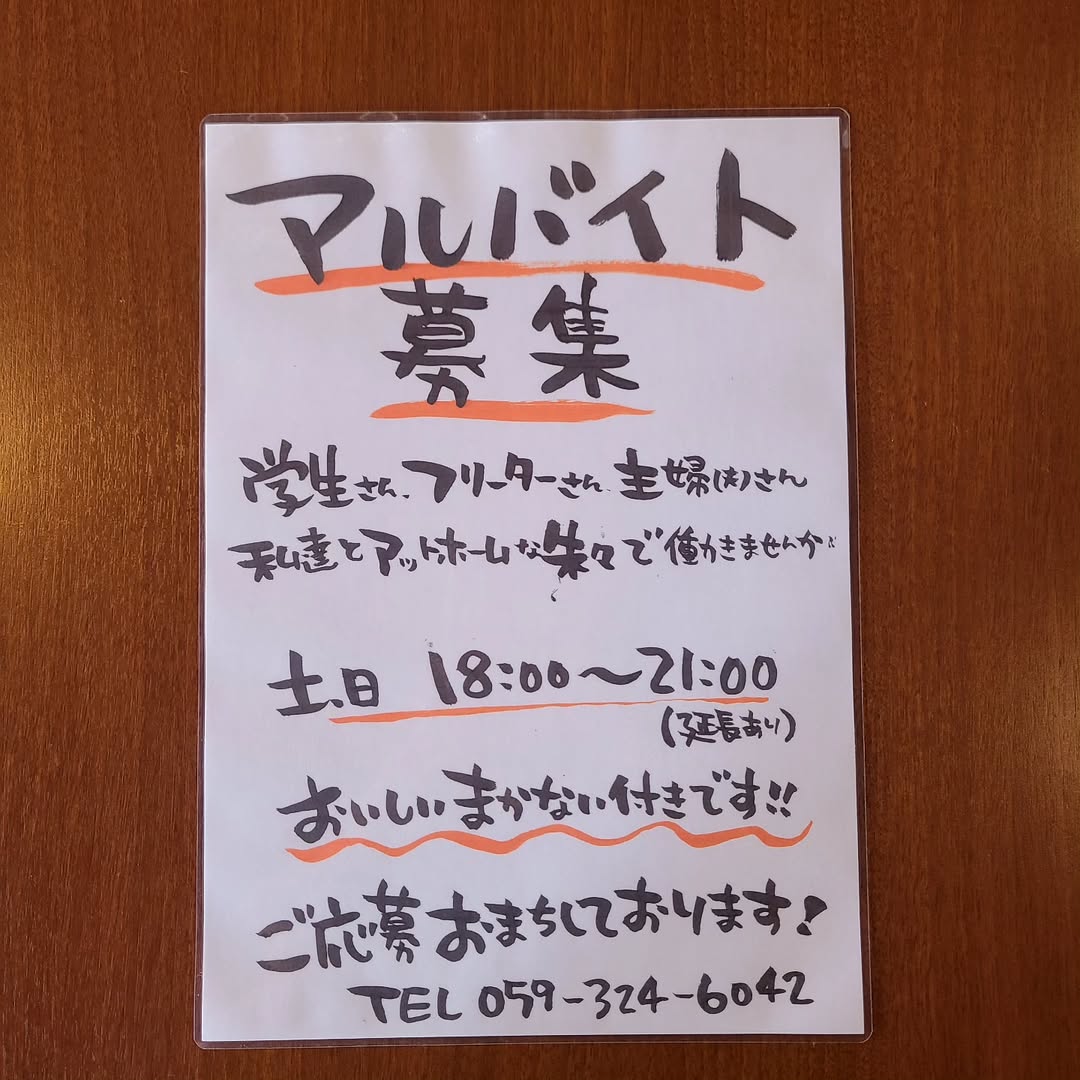 アルバイト
募集
学生さん、フリーターさん、主婦(夫)さん
私達とアットホームな朱々で働きませんか
土、日 18:00〜21:00
(延長あり)
おいしいまかない付きです!!
ご応募おまちしております!
TEL 059-324-6042